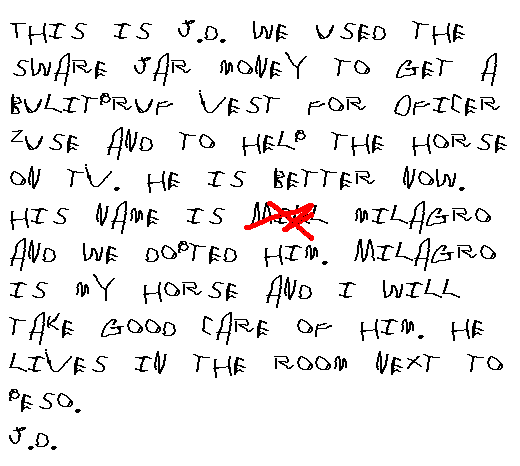 THIS IS J.D. WE USED THE
SWARE JAR MONEY TO GET A
BULITBRUF VEST FOR OFICER
ZUSE AND TO HELB THE HORSE
ON TV. HE IS BETTER NOW.
HIS NAME IS MILAGRO
AND WE DOBTED HIM. MILAGRO
IS MY HORSE AND I WILL
TAKE GOOD CARE OF HIM. HE
LIVES IN THE ROOM NEXT TO
BESO.
J.D.